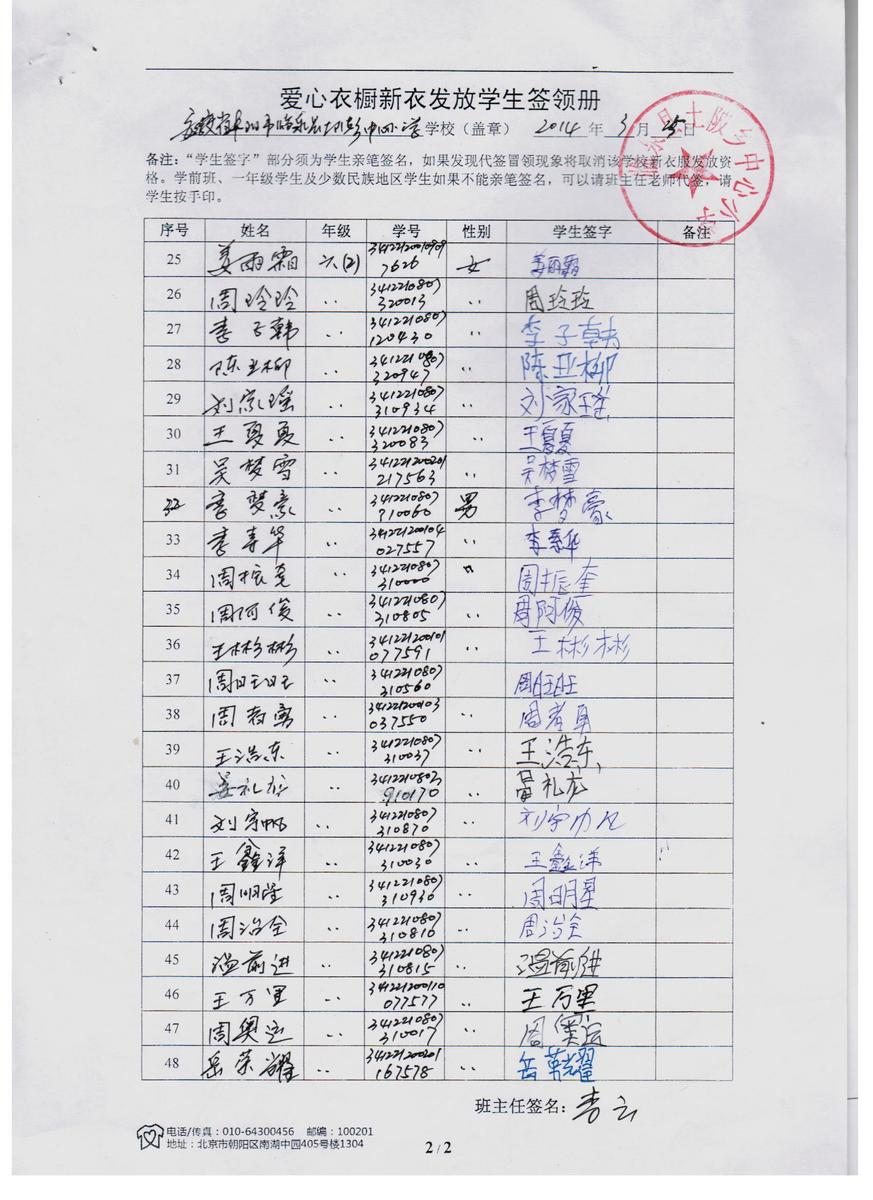 爱心衣橱新衣发放学生签领册
安徽省阜阳市临泉县土陂乡中心小学学校（盖章） 2014 年 3 月 25 日
临泉县土陂乡中心小学
备注：“学生签字”部分须为学生亲笔签名，如果发现代签冒领现象将取消该学校新衣服发放资
格。学前班、一年级学生及少数民族地区学生如果不能亲笔签名，可以请班主任老师代签，请
学生按手印。
序号 姓名 年级 学号 性别 学生签字 备注
25 姜雨霜 六(2) 341221200109097626 女 姜雨霜
26 周玲玲 .. 3412210807320013 .. 周玲玲
27 李子韩 .. 3412210807120430 .. 李子韩
28 陈亚柳 .. 3412210807320947 .. 陈亚柳
29 刘家瑶 .. 3412210807310934 .. 刘家瑶
30 王夏夏 .. 3412210807320083 .. 王夏夏
31 吴梦雪 .. 341221200201217563 .. 吴梦雪
32 李梦豪 .. 3412210807910060 男 李梦豪
33 李寿华 .. 341221200104027557 .. 李寿华
34 周振奎 .. 3412210807310000 " 周振奎
35 周阿俊 .. 3412210807310805 .. 周阿俊
36 王彬彬 .. 341221200101077591 .. 王彬彬
37 周旺旺 .. 3412210807310560 .. 周旺旺
38 周孝勇 .. 341221200103037550 .. 周孝勇
39 王浩东 .. 3412210807310037 .. 王浩东
40 姜礼龙 .. 3412210803910170 .. 姜礼龙
41 刘宇帆 .. 3412210807310870 .. 刘宇帆
42 王鑫洋 .. 3412210807310030 .. 王鑫洋
43 周明星 .. 3412210807310936 .. 周明星
44 周治全 .. 3412210807310816 .. 周治全
45 温前进 .. 3412210807310815 .. 温前进
46 王万里 .. 341221200110077577 .. 王万里
47 周奥运 .. 3412210807310017 .. 周奥运
48 岳荣耀 .. 341221200201167578 .. 岳荣耀
班主任签名：李云
电话/传真：010-64300456 邮编：100201
地址：北京市朝阳区南湖中园405号楼1304
2 / 2